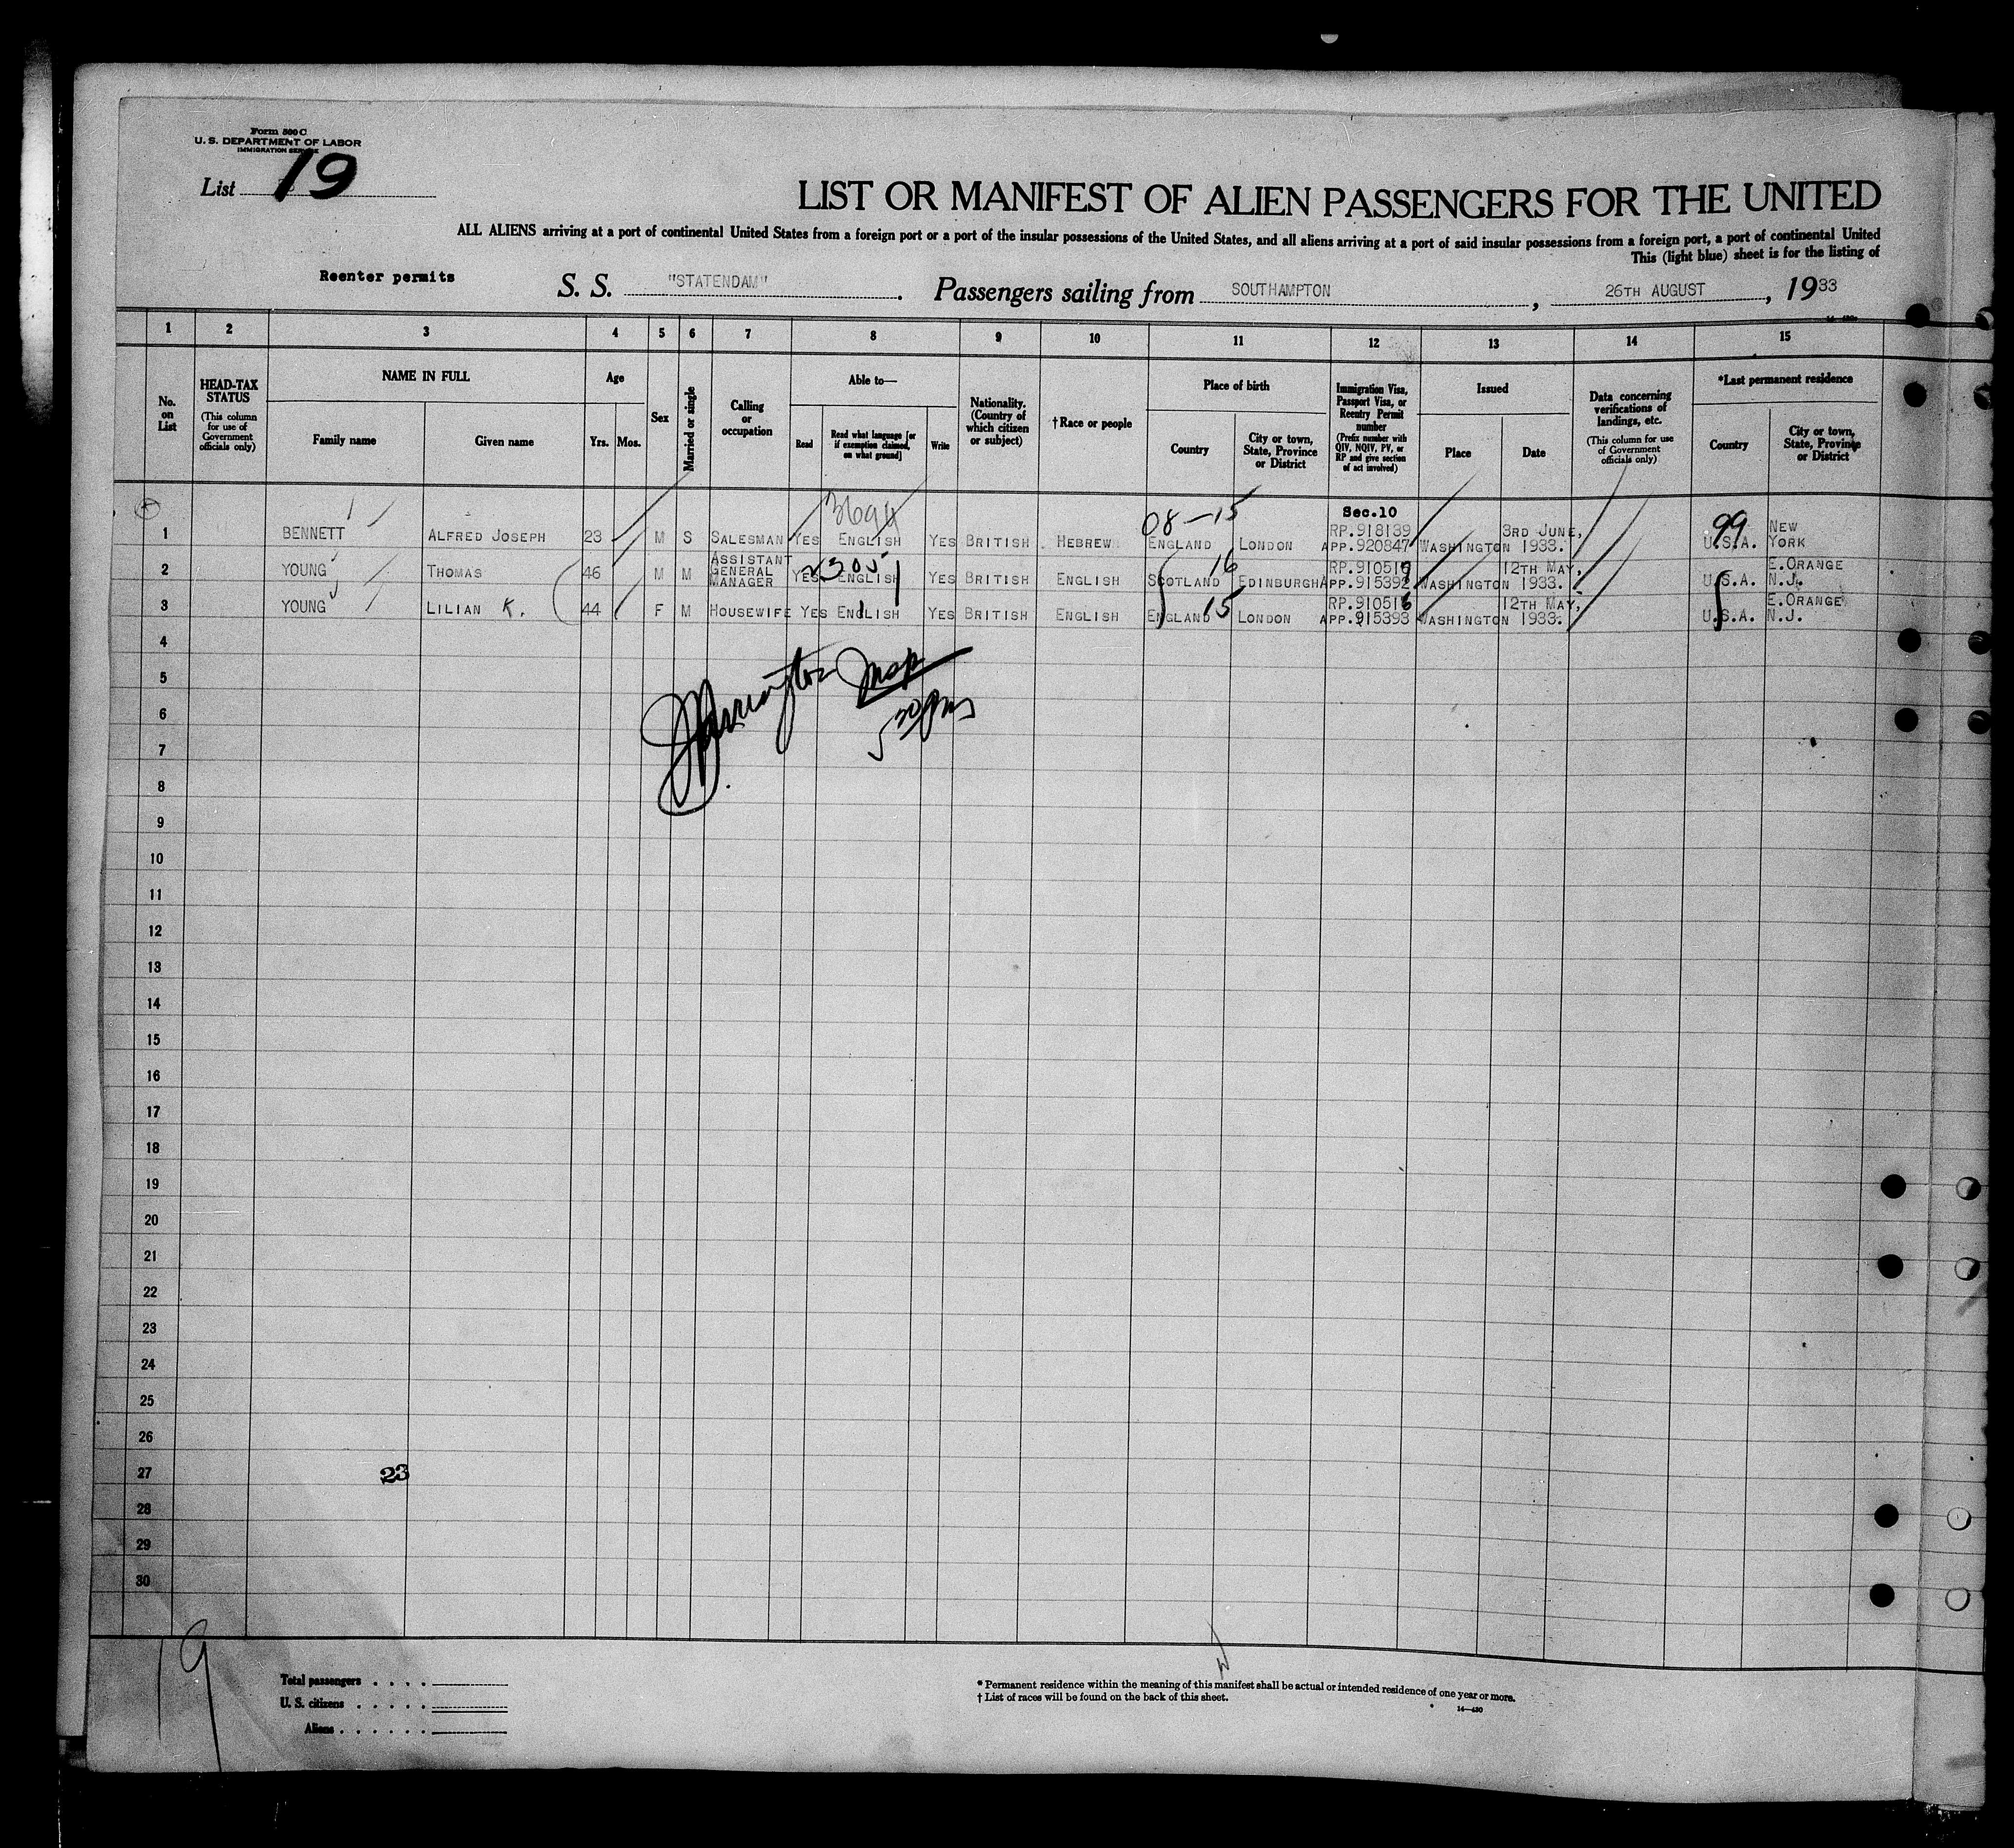 Form 500 C
U. S. DEPARTMENT OF LABOR
IMMIGRATION SERVICE
List 19
LIST OR MANIFEST OF ALIEN PASSENGERS FOR THE UNITED
ALL ALIENS arriving at a port of continental United States from a foreign port or a port of the insular possessions of the United States, and all aliens arriving at a port of said insular possessions from a foreign port, a port of continental United
This (light blue) sheet is for the listing of
Reenter permits
S. S. "STATENDAM". Passengers sailing from SOUTHAMPTON, 26TH AUGUST, 1933
1 2 3 4 5 6 7 8 9 10 11 12 13 14 15
No. on List
HEAD-TAX STATUS
(This column for use of Government officials only)
NAME IN FULL
Family name
Given name
Age
Yrs. Mos.
Sex
Married or single
Calling or occupation
Able to—
Read
Read what language [or if exemption claimed, on what ground]
Write
Nationality. (Country of which citizen or subject)
†Race or people
Place of birth
Country
City or town, State, Province or District
Immigration Visa, Passport Visa, or Reentry Permit number
(Prefix number with QIV, NQIV, PV, or RP and give section of act involved)
Issued
Place
Date
Data concerning verifications of landings, etc.
(This column for use of Government officials only)
*Last permanent residence
Country
City or town, State, Province or District
3694
08-15
Sec.10
99
1 BENNETT ALFRED JOSEPH 23 M S SALESMAN YES ENGLISH YES BRITISH HEBREW ENGLAND LONDON RP.918139 APP.920847 WASHINGTON 3RD JUNE, 1933. U.S.A. NEW YORK
2305
16
2 YOUNG THOMAS 46 M M ASSISTANT GENERAL MANAGER YES ENGLISH YES BRITISH ENGLISH SCOTLAND EDINBURGH APP.915392 WASHINGTON 12TH MAY, 1933. U.S.A. E.ORANGE N.J.
15
3 YOUNG LILIAN K. 44 F M HOUSEWIFE YES ENGLISH YES BRITISH ENGLISH ENGLAND LONDON RP.910516 APP.915393 WASHINGTON 12TH MAY, 1933. U.S.A. E.ORANGE N.J.
4
5
6
7
8
9
10
11
12
13
14
15
16
17
18
19
20
21
22
23
24
25
26
27 23
28
29
30
19
Total passengers
U. S. citizens
Aliens
* Permanent residence within the meaning of this manifest shall be actual or intended residence of one year or more.
† List of races will be found on the back of this sheet.
14—430